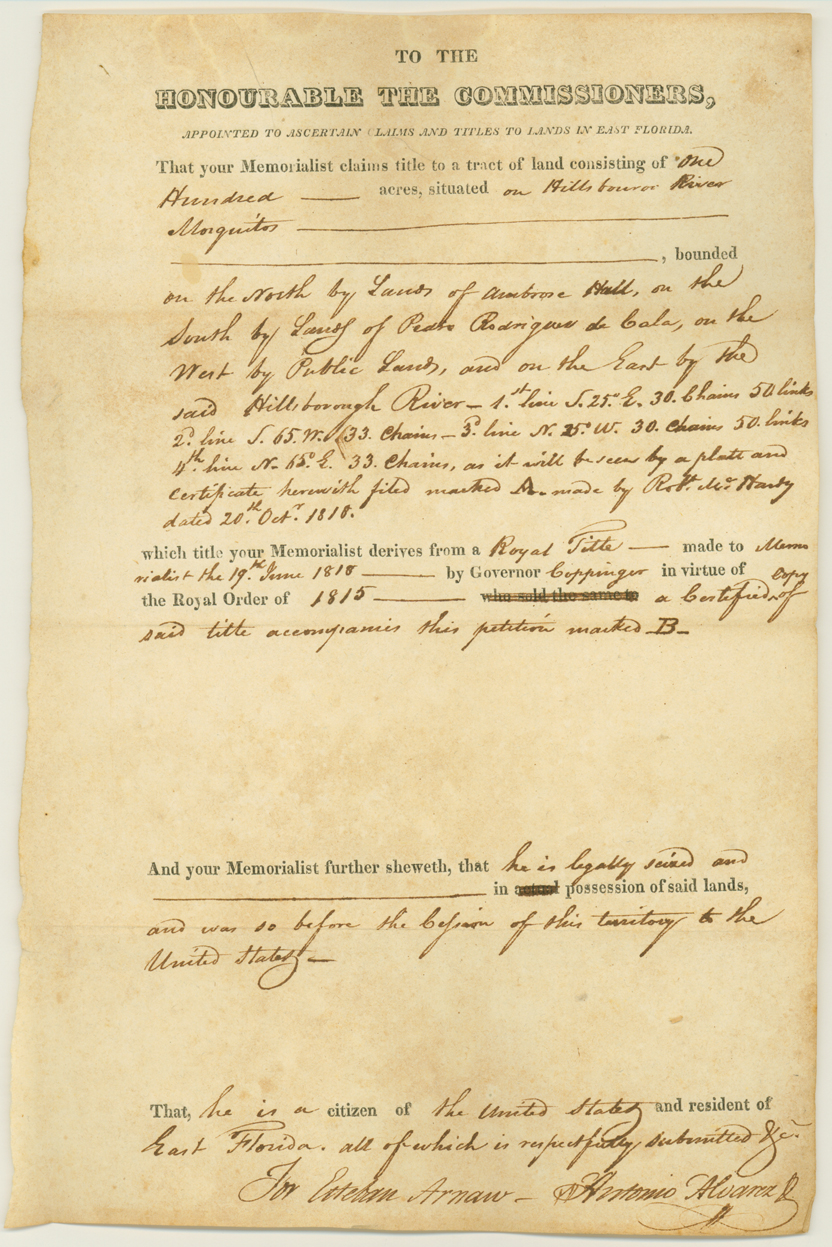 TO THE
HONOURABLE THE COMMISSIONERS,
APPOINTED TO ASCERTAIN CLAIMS AND TITLES TO LANDS IN EAST FLORIDA.
That your Memorialist claims title to a tract of land consisting of One
Hundred — acres, situated on Hillsbouror River
Mosquitos —
, bounded
on the North by Lands of Ambrose Hull, on the
South by Lands of Pedro Rodriguez de Cala, on the
West by Public Lands, and on the East by the
said Hillsborough River – 1.st line S. 25.° E. 30. Chains 50 links
2.d line S. 65. W. 33. Chains – 3.d line N. 25.° W. 30 Chains 50. links
4.th line N. 65.° E. 33. Chains, as it will be seen by a platt and
certificate herewith filed marked A. made by Robt. Mc. Hardy
dated 20.th Octr. 1818.
which title your Memorialist derives from a Royal Title — made to Memo
rialist the 19.th June 1818 — by Governor Coppinger in virtue of
the Royal Order of 1815 — who sold the same to a Certified copy of
said title accompanies this petition marked B –
And your Memorialist further sheweth, that he is legally seized and
in actual possession of said lands,
and was so before the Cession of this territory to the
United States –
That, he is a citizen of the United States and resident of
East Florida. all of which is respectfully submitted &c.
For Esteban Arnau – Antonio Alvarez